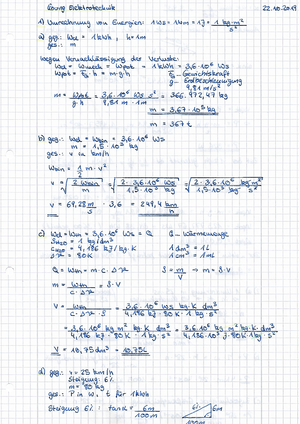 Übung Elektrotechnik 22.10.2019
1) Umrechnung von Energien: 1Ws = 1Nm = 1J = 1 kg·m²/s²
a) geg.: Wel = 1kWh, h=1m
ges.: m
wegen Vernachlässigung der Verluste:
Wel = Wmech = Wpot = 1kWh = 3,6·10⁶ Ws
Wpot = F_G·h = m·g·h F_G - Gewichtskraft
g - Erdbeschleunigung
9,81 m/s²
m = Wpot/(g·h) = 3,6·10⁶ Ws s²/(9,81 m·1m) = 366.972,47 kg
m = 3,67·10⁵ kg
m = 367 t
b) geg.: Wel = Wkin = 3,6·10⁶ Ws
m = 1,5·10³ kg
ges.: v in km/h
Wkin = 1/2 m·v²
v = √(2 Wkin/m) = √(2·3,6·10⁶ Ws/(1,5·10³ kg)) = √(2·3,6·10⁶ kg m²/(1,5·10³ kg s²))
v = 69,28 m/s · 3,6 = 249,4 km/h
c) Wel = Wth = 3,6·10⁶ Ws = Q Q - Wärmemenge
= 1 kg/dm³
= 4,186 kJ/kg·K 1dm³ = 1L
= 80K 1cm³ = 1mL
Q = Wth = m·c·Δϑ ρ = m/V → m = ρ·V
m = Wth/(c·Δϑ) = ρ·V
V = Wth/(c·Δϑ·ρ) = 3,6·10⁶ Ws kg·K dm³/(4,186 kJ·80K·1kg)
= 3,6·10⁶ kg m² kg·K dm³/(4,186 kJ·80K·1kg s²) = 3,6·10⁶ kg m² kg·K dm³/(4,186·10³ J·80K·1kg s²)
V = 10,75 dm³ = 10,75L
d) geg.: v = 25 km/h
Steigung: 6%
m = 80 kg
ges.: P in W, t für 1kWh
Steigung 6%: tan α = 6m/100m 6m
100m